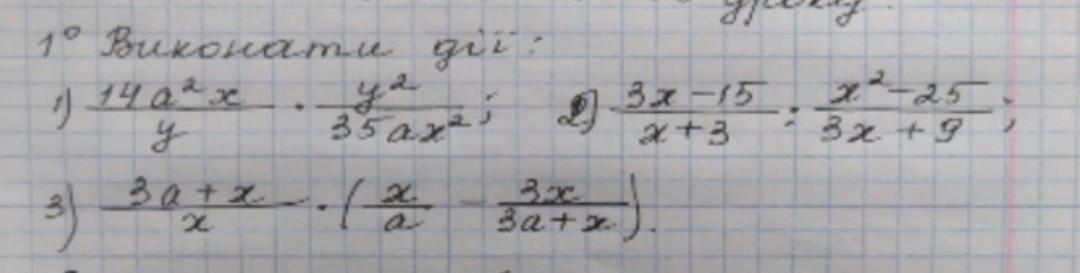 уроку.
1° Виконати дії:
1) 14a²x/y · y²/35ax²; 2) 3x-15/x+3 : x²-25/3x+9;
3) 3a+x/x · (x/a - 3x/3a+x).